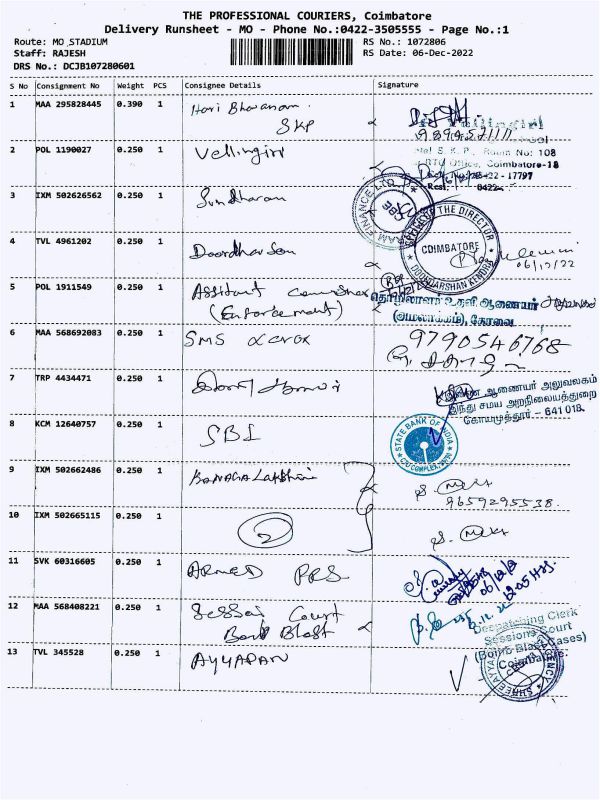 THE PROFESSIONAL COURIERS, Coimbatore
Delivery Runsheet - MO - Phone No.:0422-3505555 - Page No.:1
Route: MO STADIUM
RS No.: 1072806
Staff: RAJESH
RS Date: 06-Dec-2022
DRS No.: DCJB107280601
S No Consignment No Weight PCS Consignee Details Signature
1 MAA 295828445 0.390 1 Hari Bhavanam.
SKP
2 POL 1190027 0.250 1 Vellingiri
Room No: 108
RTO Office, Coimbatore-18
3 IXM 502626562 0.250 1 Sundharam
FINANCE LTD
CBE
4 TVL 4961202 0.250 1 Doordharsan
THE DIRECTOR
COIMBATORE
DOORDARSHAN KENDRA
06/12/22
5 POL 1911549 0.250 1 Assistant
(Enforcement)
தொழிலாளர் உதவி ஆணையர்
(அமலாக்கம்), கோவை
6 MAA 568692083 0.250 1 SMS
9790546768
7 TRP 4434471 0.250 1
ஆணையர் அலுவலகம்
இந்து சமய அறநிலையத்துறை
கோயமுத்தூர் - 641 018.
8 KCM 12640757 0.250 1 SBI
STATE BANK OF INDIA
9 IXM 502662486 0.250 1
9659295538.
10 IXM 502665115 0.250 1 2
11 SVK 60316605 0.250 1 ARMED PRS
06/12/22
12 MAA 568408221 0.250 1 Court
Blast
Despatching Clerk
Sessions Court
(Bomb Blast Cases)
Coimbatore
13 TVL 345528 0.250 1 AYYAPAN
AGENCY